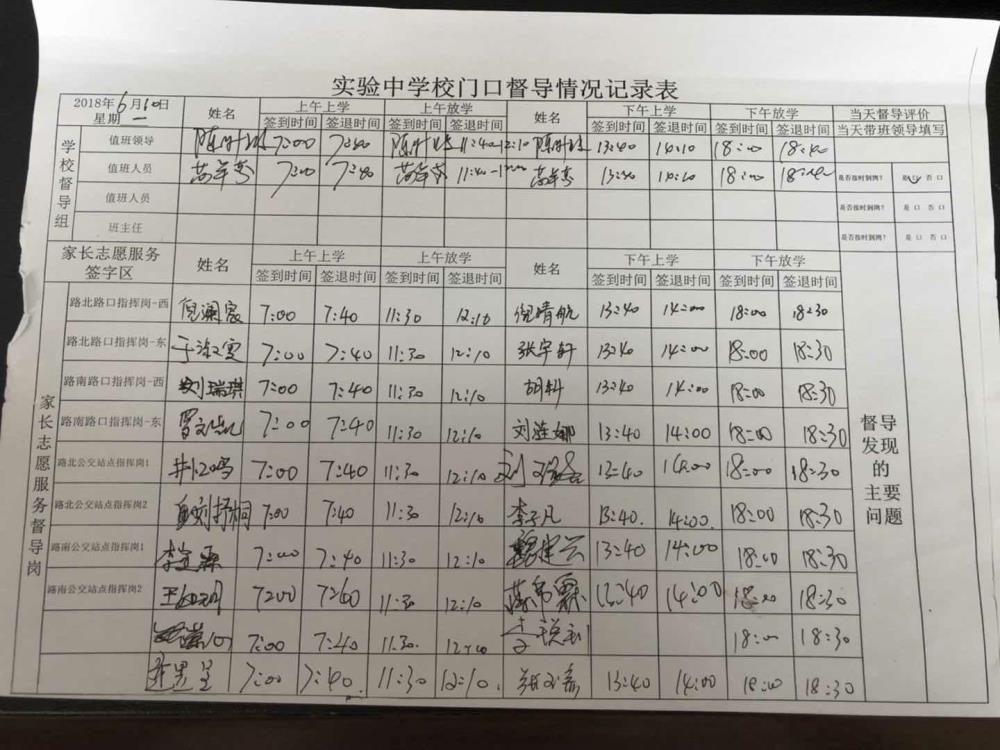 实验中学校门口督导情况记录表
2018年6月10日 星期一 姓名 上午上学 上午放学 姓名 下午上学 下午放学 当天督导评价
签到时间 签退时间 签到时间 签退时间 签到时间 签退时间 签到时间 签退时间 当天带班领导填写
学校督导组
值班领导 7:00 7:40 11:40-12:10 13:40 14:10 18:00
值班人员 7:00 7:40 11:40 14:10 18:00 是否按时到岗? 是口 否口
值班人员 是否按时到岗? 是口 否口
班主任 是否按时到岗? 是口 否口
家长志愿服务签字区 姓名 上午上学 上午放学 姓名 下午上学 下午放学
签到时间 签退时间 签到时间 签退时间 签到时间 签退时间 签到时间 签退时间
家长志愿服务督导岗
路北路口指挥岗-西 7:00 7:40 11:30 12:10 倪晴航 13:40 14:00 18:00 18:30
路北路口指挥岗-东 7:00 7:40 11:30 12:10 张宇轩 13:40 14:00 18:00 18:30
路南路口指挥岗-西 刘瑞琪 7:00 7:40 11:30 12:10 13:40 14:00 18:00 18:30
路南路口指挥岗-东 7:00 7:40 11:30 12:10 13:40 14:00 18:00 18:30
路北公交站点指挥岗1 7:00 7:40 11:30 12:10 13:40 14:00 18:00 18:30
路北公交站点指挥岗2 7:00 7:40 11:30 12:10 李子凡 13:40. 14:00. 18:00 18:30
路南公交站点指挥岗1 7:00 7:40 11:30 12:10 魏建兴 13:40 14:00 18:00 18:30
路南公交站点指挥岗2 7:00 11:30 12:10 13:40 14:00 18:00 18:30
7:00 7:40 11:30. 李锐剑 18:00 18:30
7:00 7:40. 11:30 12:10. 13:40 14:00 18:00 18:30
督导发现的主要问题